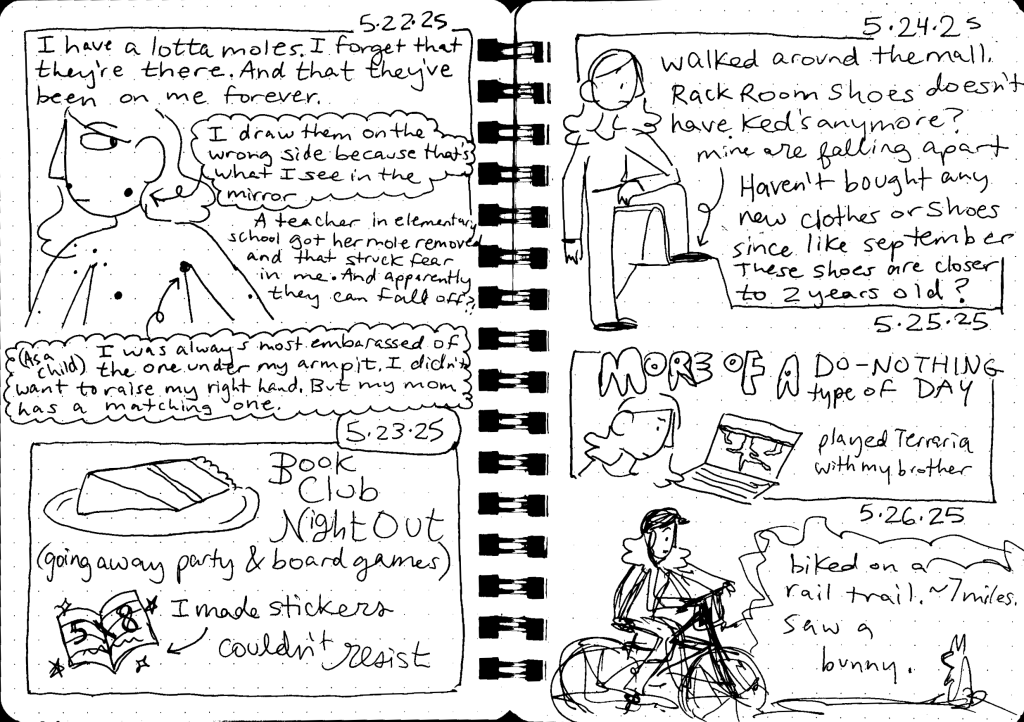 5.22.25
I have a lotta moles. I forget that
they're there. And that they've
been on me forever.
I draw them on the
wrong side because that's
what I see in the
mirror
A teacher in elementary
school got her mole removed
and that struck fear
in me. And apparently
they can fall off?
(As a child) I was always most embarassed of
the one under my armpit. I didn't
want to raise my right hand. But my mom
has a matching one.
5.23.25
Book
Club
Night Out
(going away party & board games)
5 8
I made stickers
couldn't resist
5.24.25
walked around the mall.
Rack Room Shoes doesn't
have Ked's anymore?
mine are falling apart
Haven't bought any
new clothes or shoes
since like september
These shoes are closer
to 2 years old?
5.25.25
MORE OF A DO-NOTHING
type of DAY
played Terraria
with my brother
5.26.25
biked on a
rail trail. ~7 miles.
saw a
bunny.